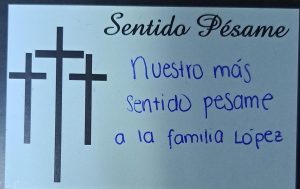 Sentido Pésame
Nuestro más
sentido pesame
a la familia López